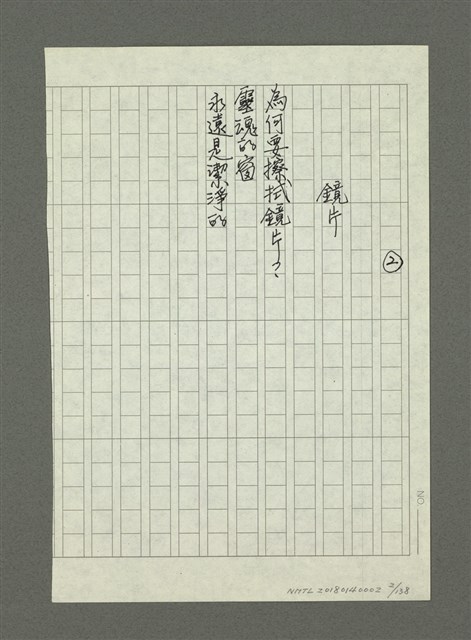 ②
鏡片
為何要擦拭鏡片？
靈魂的窗
永遠是潔淨的
NO.
NMTL 20180140002 2/138